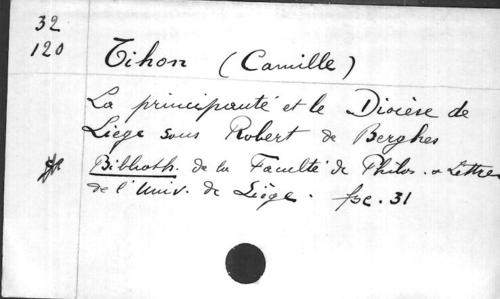 32
120
Tihon (Camille)
La principauté et le Diocèse de
Liège sous Robert de Berghes
Biblioth. de la Faculté de Philos. & Lettres
de l'Univ. de Liège. fsc. 31